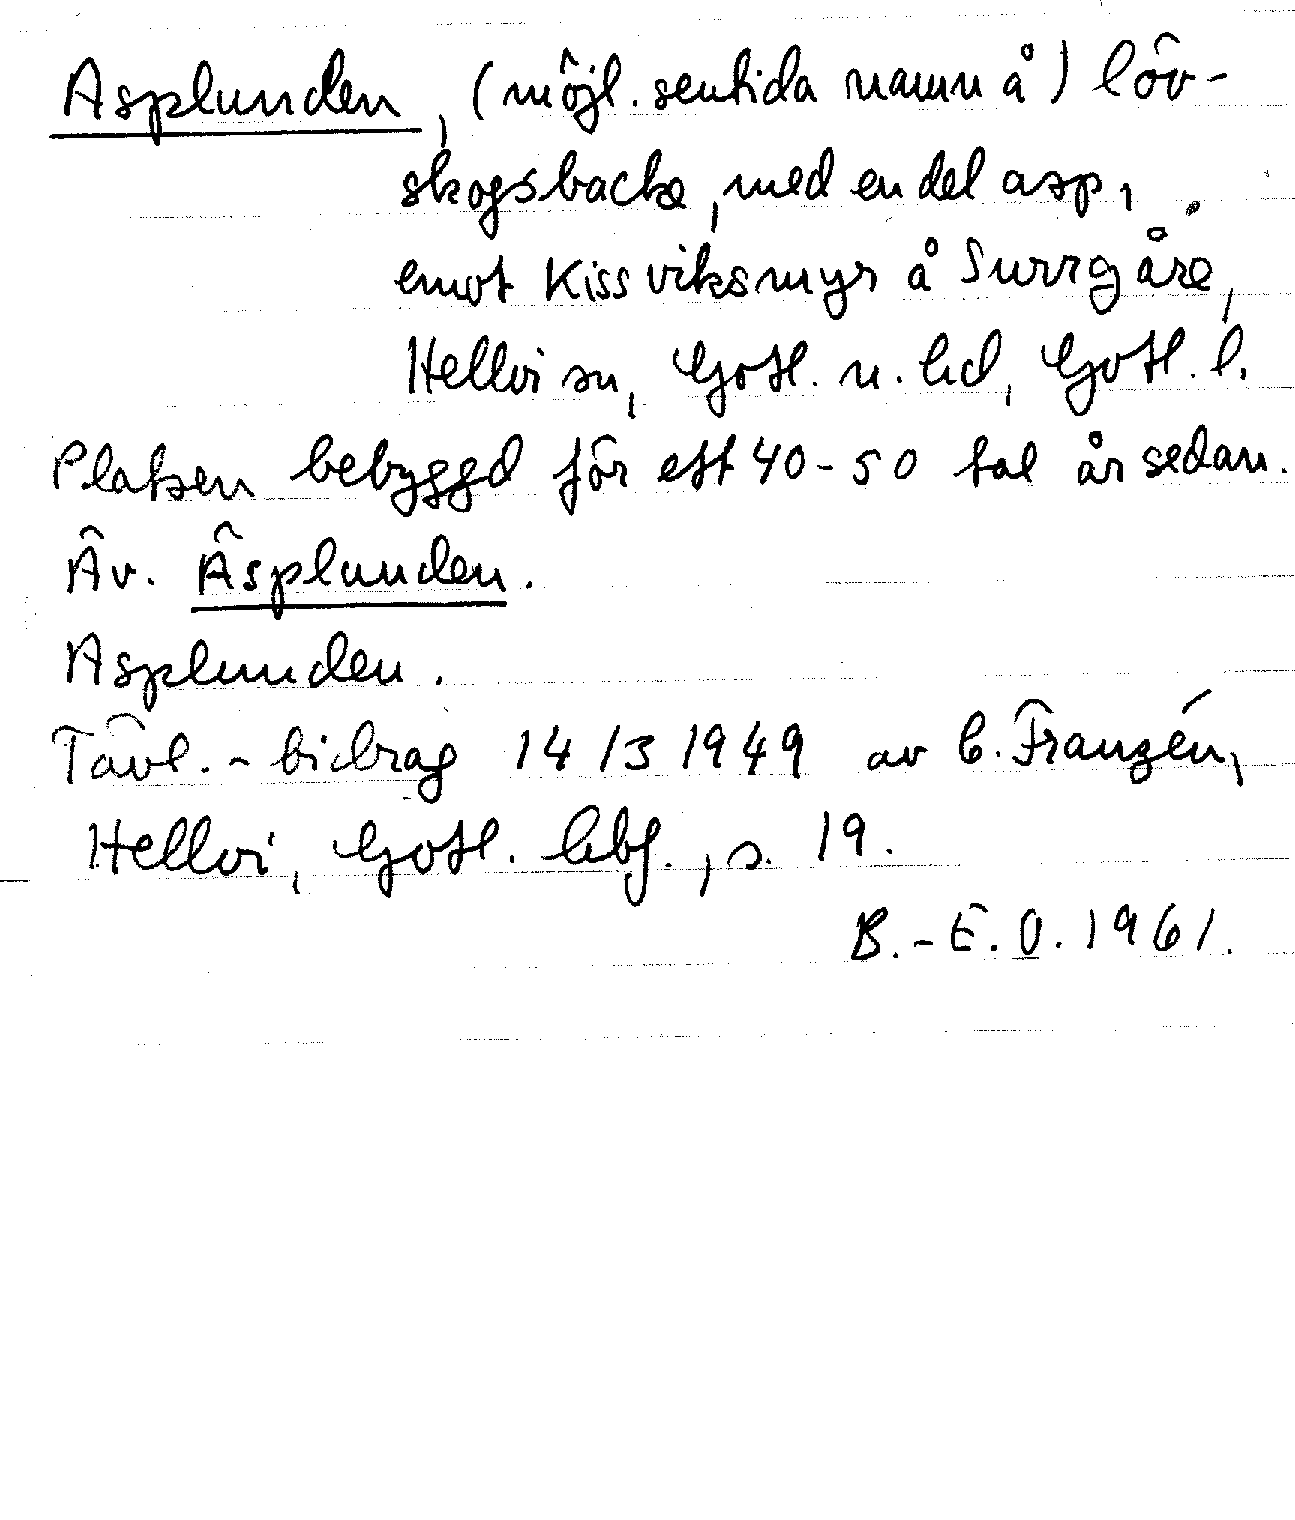 Asplunden, (möjl. sentida namn å) löv-
skogsbacke, med en del asp,
emot Kissviksmyr å Surrgåre,
Hellvi sn, Gotl. n. hd, Gotl. l.
Platsen bebyggd för ett 40-50 tal år sedan.
Äv. Äsplunden.
Asplunden.
Tävl.-bidrag 14/3 1949 av C. Franzén,
Hellvi, Gotl. hbf., s. 19.
B.-E. O. 1961.